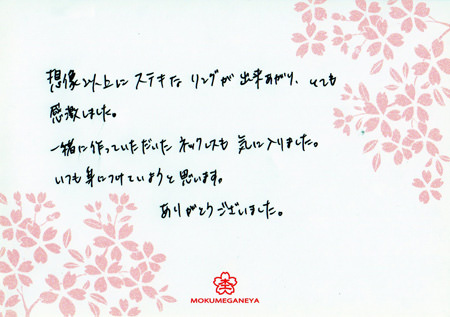 想像以上にステキなリングが出来あがり、とても
感激しました。
一緒に作っていただいたネックレスも気に入りました。
いつも身につけていようと思います。
ありがとうございました。
MOKUMEGANEYA